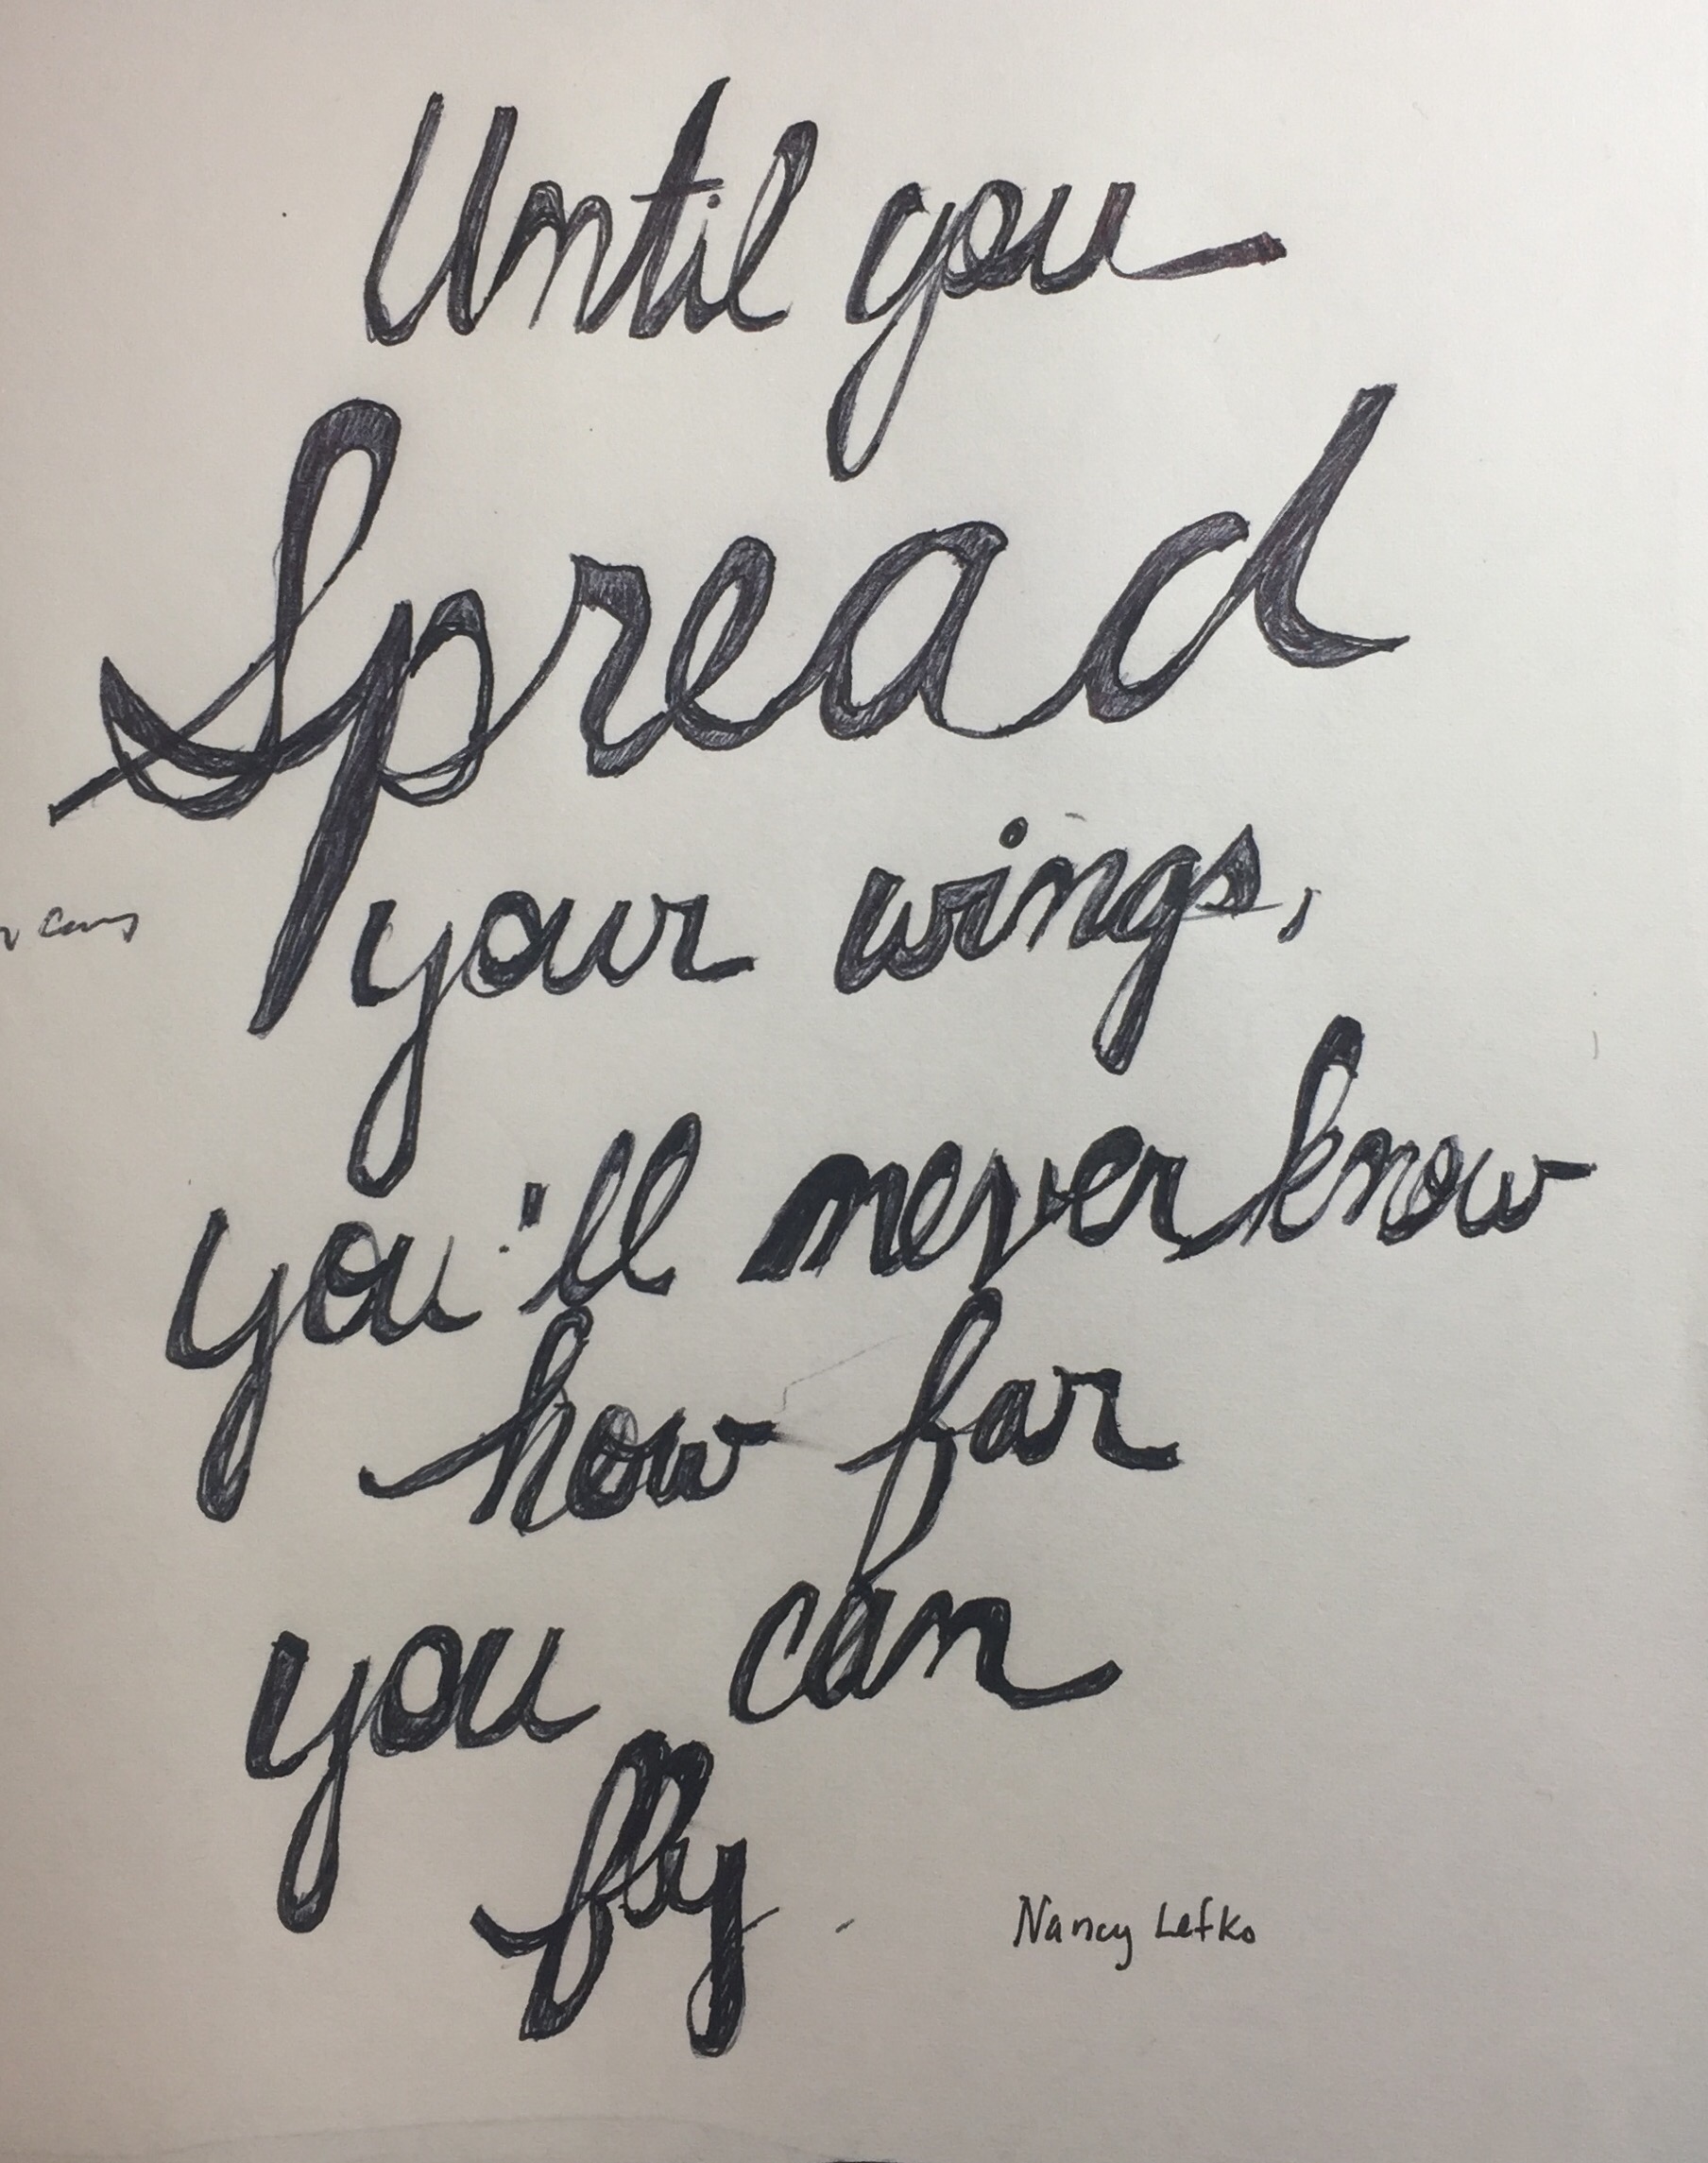 Until you
Spread
your wings,
you'll never know
how far
you can
fly.
Nancy Lefko